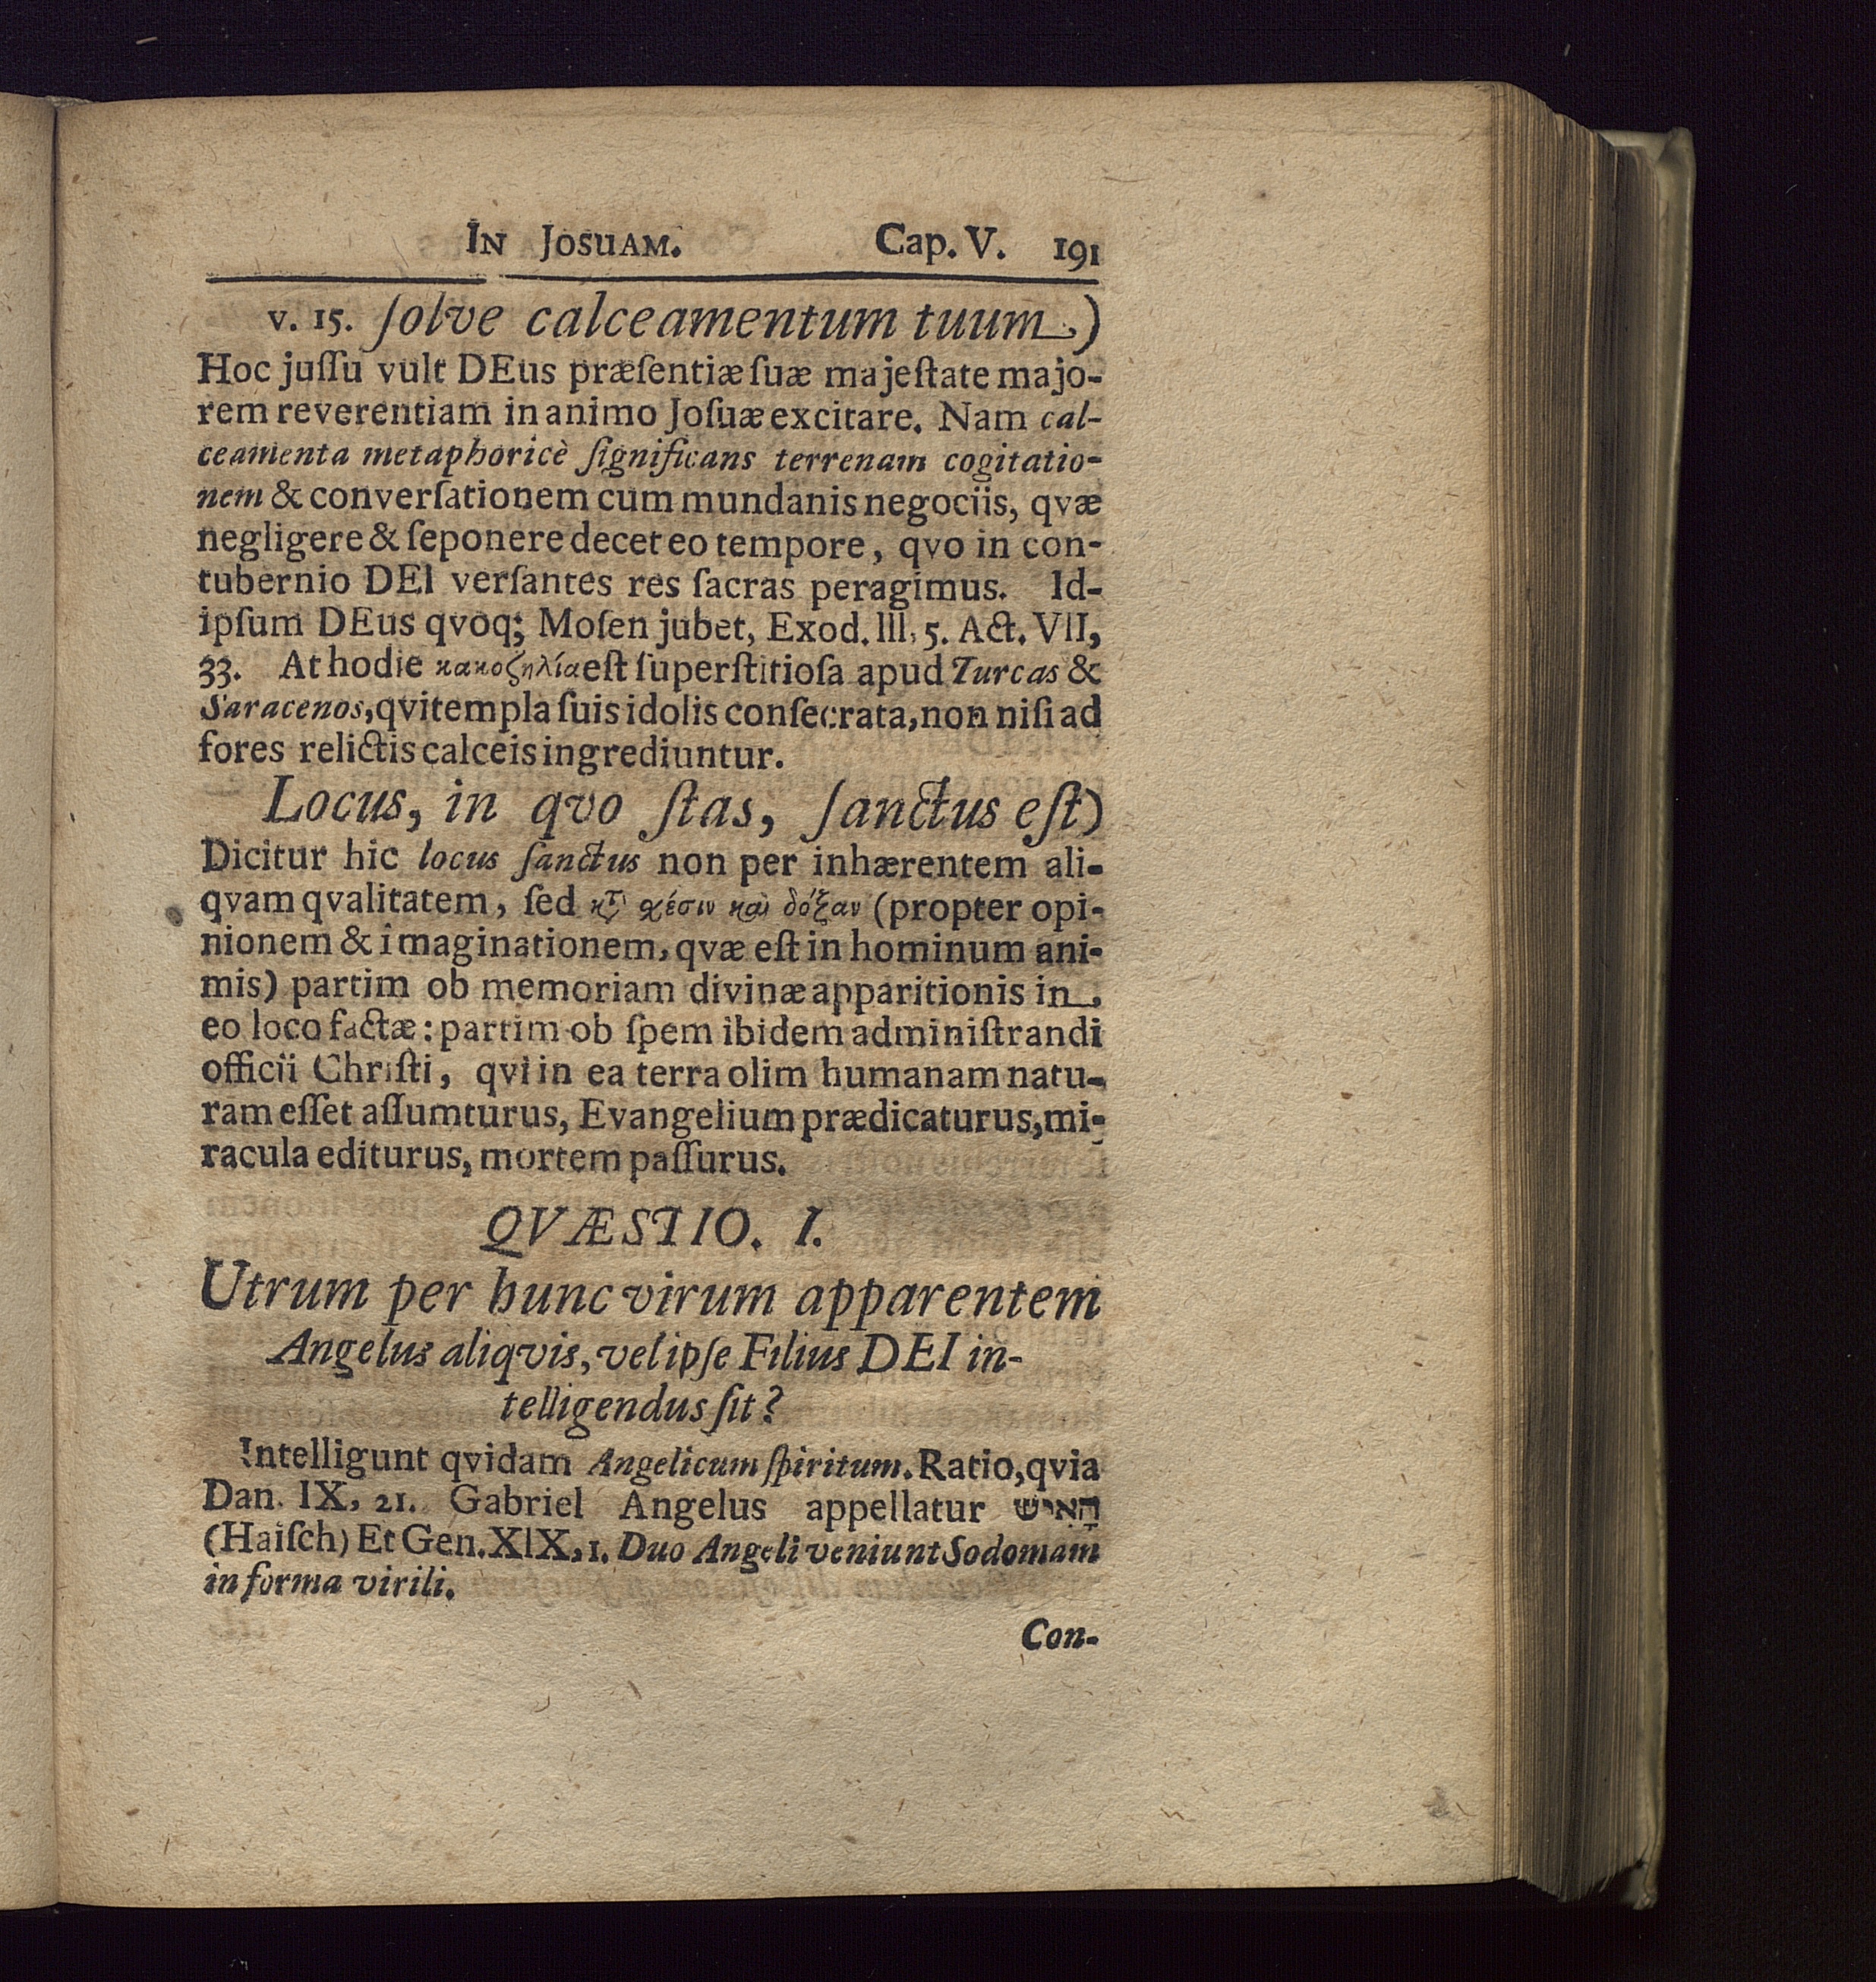 IN JOSUAM. Cap. V. 191
v. 15. ſolve calceamentum tuum)
Hoc juſſu vult DEus præſentiæ ſuæ majeſtate majo-
rem reverentiam in animo Joſuæ excitare. Nam cal-
ceamenta metaphoricè ſignificans terrenam cogitatio-
nem & converſationem cum mundanis negociis, qvæ
negligere & ſeponere decet eo tempore, qvo in con-
tubernio DEI verſantes res ſacras peragimus. Id-
ipſum DEus qvoq; Moſen jubet, Exod. III, 5. Act. VII,
33. At hodie κακοζηλία eſt ſuperſtitioſa apud Turcas &
Saracenos, qvi templa ſuis idolis conſecrata, non niſi ad
fores relictis calceis ingrediuntur.
Locus, in qvo ſtas, ſanctus eſt)
Dicitur hic locus ſanctus non per inhærentem ali-
qvam qvalitatem, ſed κτ̀ χέσιν καὶ δόξαν (propter opi-
nionem & imaginationem, qvæ eſt in hominum ani-
mis) partim ob memoriam divinæ apparitionis in
eo loco factæ: partim ob ſpem ibidem adminiſtrandi
officii Chriſti, qvi in ea terra olim humanam natu-
ram eſſet aſſumturus, Evangelium prædicaturus, mi-
racula editurus, mortem paſſurus.
QVÆSTIO. I.
Utrum per hunc virum apparentem
Angelus aliqvis, vel ipſe Filius DEI in-
telligendus ſit?
Intelligunt qvidam Angelicum ſpiritum. Ratio, qvia
Dan. IX, 21. Gabriel Angelus appellatur הָאִישׁ
(Haiſch) Et Gen. XIX, 1. Duo Angeli veniunt Sodomam
in forma virili.
Con-